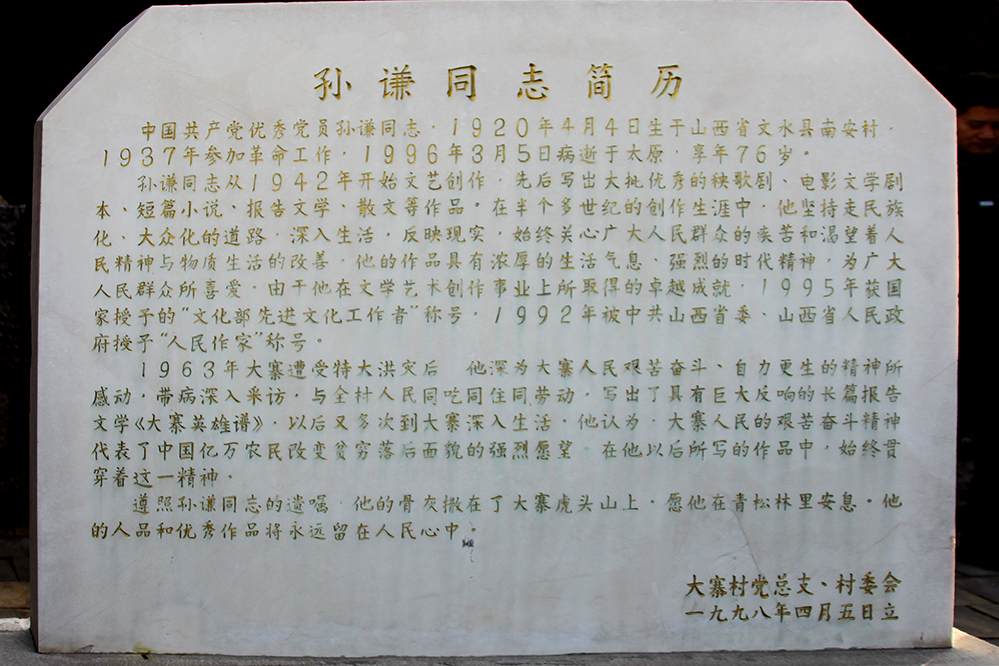 孙谦同志简历
中国共产党优秀党员孙谦同志，1920年4月4日生于山西省文水县南安村，
1937年参加革命工作，1996年3月5日病逝于太原，享年76岁。
孙谦同志从1942年开始文艺创作，先后写出大批优秀的秧歌剧、电影文学剧
本、短篇小说、报告文学、散文等作品。在半个多世纪的创作生涯中，他坚持走民族
化、大众化的道路，深入生活，反映现实，始终关心广大人民群众的疾苦和渴望着人
民精神与物质生活的改善，他的作品具有浓厚的生活气息、强烈的时代精神，为广大
人民群众所喜爱，由于他在文学艺术创作事业上所取得的卓越成就，1995年获国
家授予的“文化部先进文化工作者”称号，1992年被中共山西省委、山西省人民政
府授予“人民作家”称号。
1963年大寨遭受特大洪灾后 他深为大寨人民艰苦奋斗、自力更生的精神所
感动，带病深入采访，与全村人民同吃同住同劳动，写出了具有巨大反响的长篇报告
文学《大寨英雄谱》，以后又多次到大寨深入生活，他认为，大寨人民的艰苦奋斗精神
代表了中国亿万农民改变贫穷落后面貌的强烈愿望，在他以后所写的作品中，始终贯
穿着这一精神。
遵照孙谦同志的遗嘱，他的骨灰撒在了大寨虎头山上，愿他在青松林里安息。他
的人品和优秀作品将永远留在人民心中。
大寨村党总支、村委会
一九九八年四月五日立